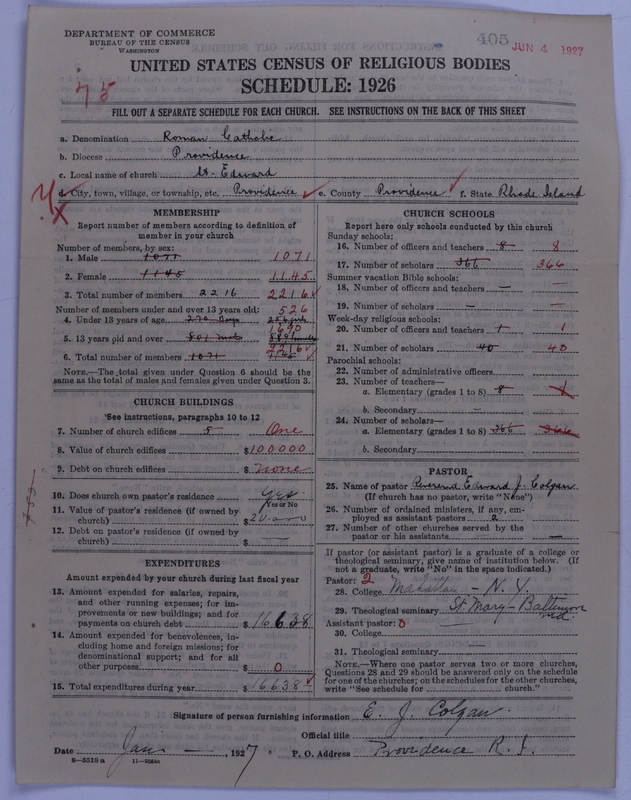 DEPARTMENT OF COMMERCE
BUREAU OF THE CENSUS
WASHINGTON
405 JUN 4 1927
UNITED STATES CENSUS OF RELIGIOUS BODIES
SCHEDULE: 1926
75
FILL OUT A SEPARATE SCHEDULE FOR EACH CHURCH. SEE INSTRUCTIONS ON THE BACK OF THIS SHEET
a. Denomination Roman Catholic
b. Diocese Providence
c. Local name of church St. Edward
d. City, town, village, or township, etc. Providence e. County Providence f. State Rhode Island
MEMBERSHIP
Report number of members according to definition of
member in your church
Number of members, by sex:
1. Male 1071 1071
2. Female 1145 1145
3. Total number of members 2216 2216
Number of members under and over 13 years old: 526
4. Under 13 years of age
1690
5. 13 years old and over
2216
6. Total number of members 1071
NOTE.—The total given under Question 6 should be the
same as the total of males and females given under Question 3.
CHURCH BUILDINGS
See instructions, paragraphs 10 to 12
7. Number of church edifices 5 One
8. Value of church edifices $100000
9. Debt on church edifices $none
10. Does church own pastor's residence yes
Yes or No
11. Value of pastor's residence (if owned by
church) $20.000
12. Debt on pastor's residence (if owned by
church) $ —
EXPENDITURES
Amount expended by your church during last fiscal year
13. Amount expended for salaries, repairs,
and other running expenses; for im-
provements or new buildings; and for
payments on church debt $16638
14. Amount expended for benevolences, in-
cluding home and foreign missions; for
denominational support; and for all
other purposes $ 0
15. Total expenditures during year $16638
CHURCH SCHOOLS
Report here only schools conducted by this church
Sunday schools:
16. Number of officers and teachers 8 8
17. Number of scholars 366 366
Summer vacation Bible schools:
18. Number of officers and teachers — —
19. Number of scholars — —
Week-day religious schools:
20. Number of officers and teachers 1 1
21. Number of scholars 40 40
Parochial schools:
22. Number of administrative officers
23. Number of teachers—
a. Elementary (grades 1 to 8) 8
b. Secondary —
24. Number of scholars—
a. Elementary (grades 1 to 8) 366 366
b. Secondary
PASTOR
25. Name of pastor Reverend Edward J. Colgan
(If church has no pastor, write "None")
26. Number of ordained ministers, if any, em-
ployed as assistant pastors 2
27. Number of other churches served by the
pastor or his assistants —
If pastor (or assistant pastor) is a graduate of a college or
theological seminary, give name of institution below. (If
not a graduate, write "No" in the space indicated.)
Pastor: 2
28. College Manhattan - N. Y.
29. Theological seminary St. Mary - Baltimore Md.
Assistant pastor: 0
30. College —
31. Theological seminary —
NOTE.—Where one pastor serves two or more churches,
Questions 28 and 29 should be answered only on the schedule
for one of the churches; on the schedules for the other churches,
write "See schedule for church."
Signature of person furnishing information E. J. Colgan.
Official title
Date Jan — 1927 P. O. Address Providence R. I.
8—5518 a